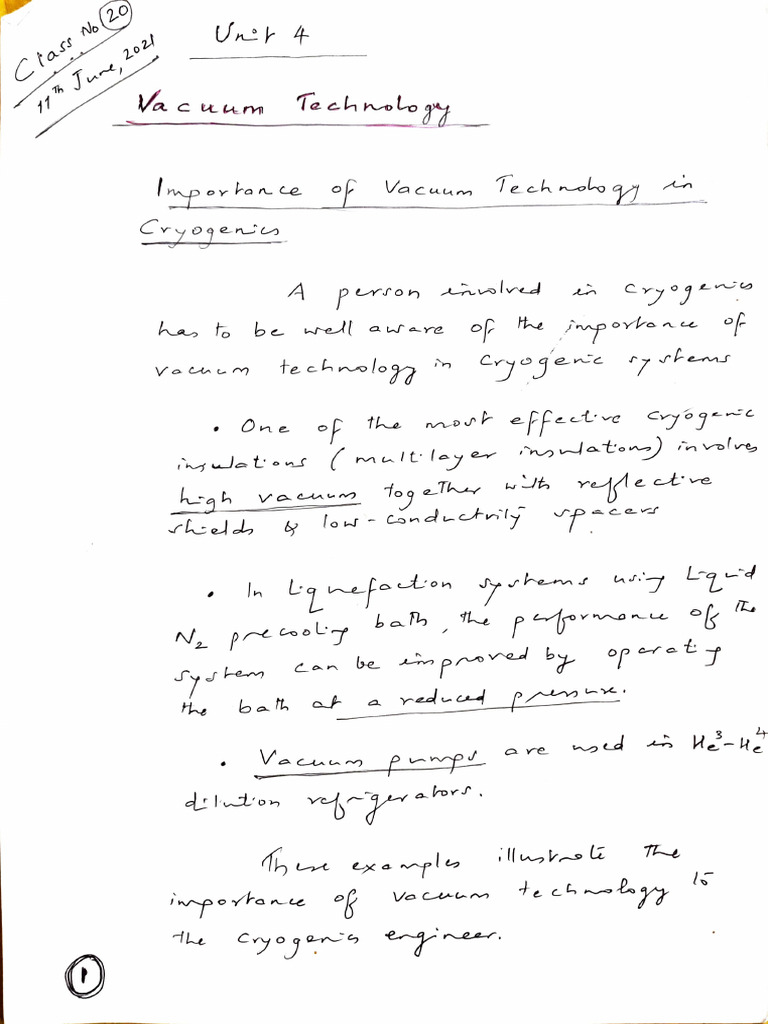 Class No 20
11th June, 2021
Unit 4
Vacuum Technology
Importance of Vacuum Technology in
Cryogenics
A person involved in cryogenics
has to be well aware of the importance of
vacuum technology in cryogenic systems
• One of the most effective cryogenic
insulations (multilayer insulations) involves
high vacuum together with reflective
shields & low-conductivity spacers
• In Liquefaction systems using Liquid
N2 precooling bath, the performance of the
system can be improved by operating
the bath at a reduced pressure.
• Vacuum pumps are used in He³-He⁴
dilution refrigerators.
These examples illustrate the
importance of vacuum technology to
the cryogenic engineer.
1